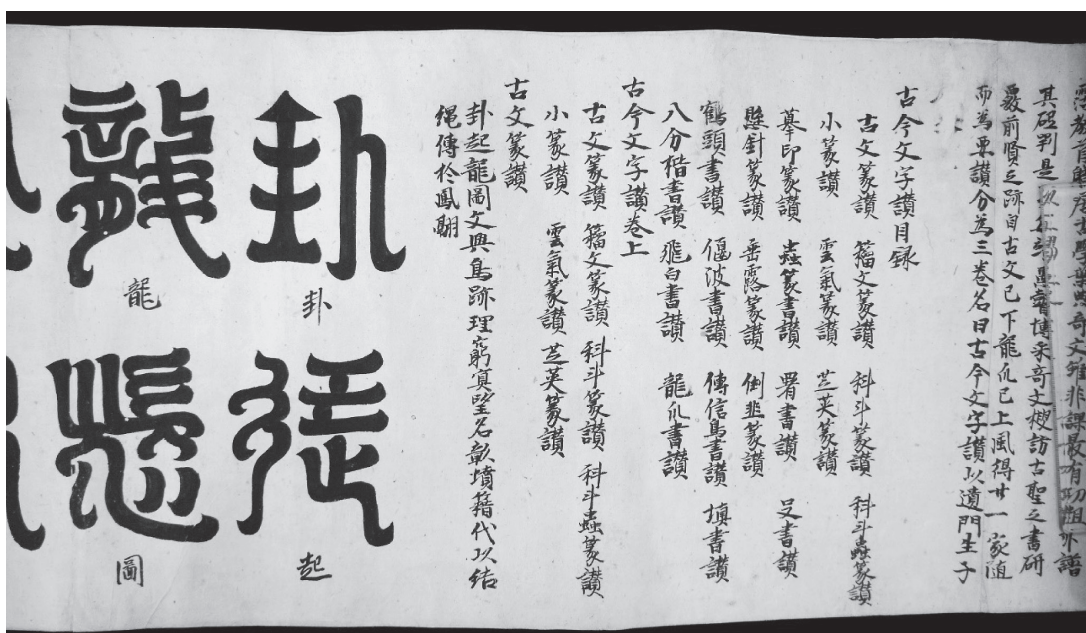 奇文雖非課最有
其砥判是 愚瞽博采奇文搜訪古聖之書研
覈前賢之跡自古文已下龍爪已上風得廿一家随
而為 讃分為三卷名曰古今文字讃以遺門生子
古今文字讃目録
古文篆讃 籀文篆讃 科斗篆讃 科斗蟲篆讃
小篆讃 雲氣篆讃 芝英篆讃
摹印篆讃 蟲篆書讃 署書讃 殳書讃
懸針篆讃 垂露篆讃 倒韭篆讃
鶴頭書讃 偃波書讃 傳信鳥書讃 填書讃
八分楷書讃 飛白書讃 龍爪書讃
古今文字讃卷上
古文篆讃 籀文篆讃 科斗篆讃 科斗蟲篆讃
小篆讃 雲氣篆讃 芝英篆讃
古文篆讃
卦起龍圖文興鳥跡理窮寘望名彰墳籍代以結
繩傳於鳳翮
卦 起
卦 起
龍 圖
龍 圖